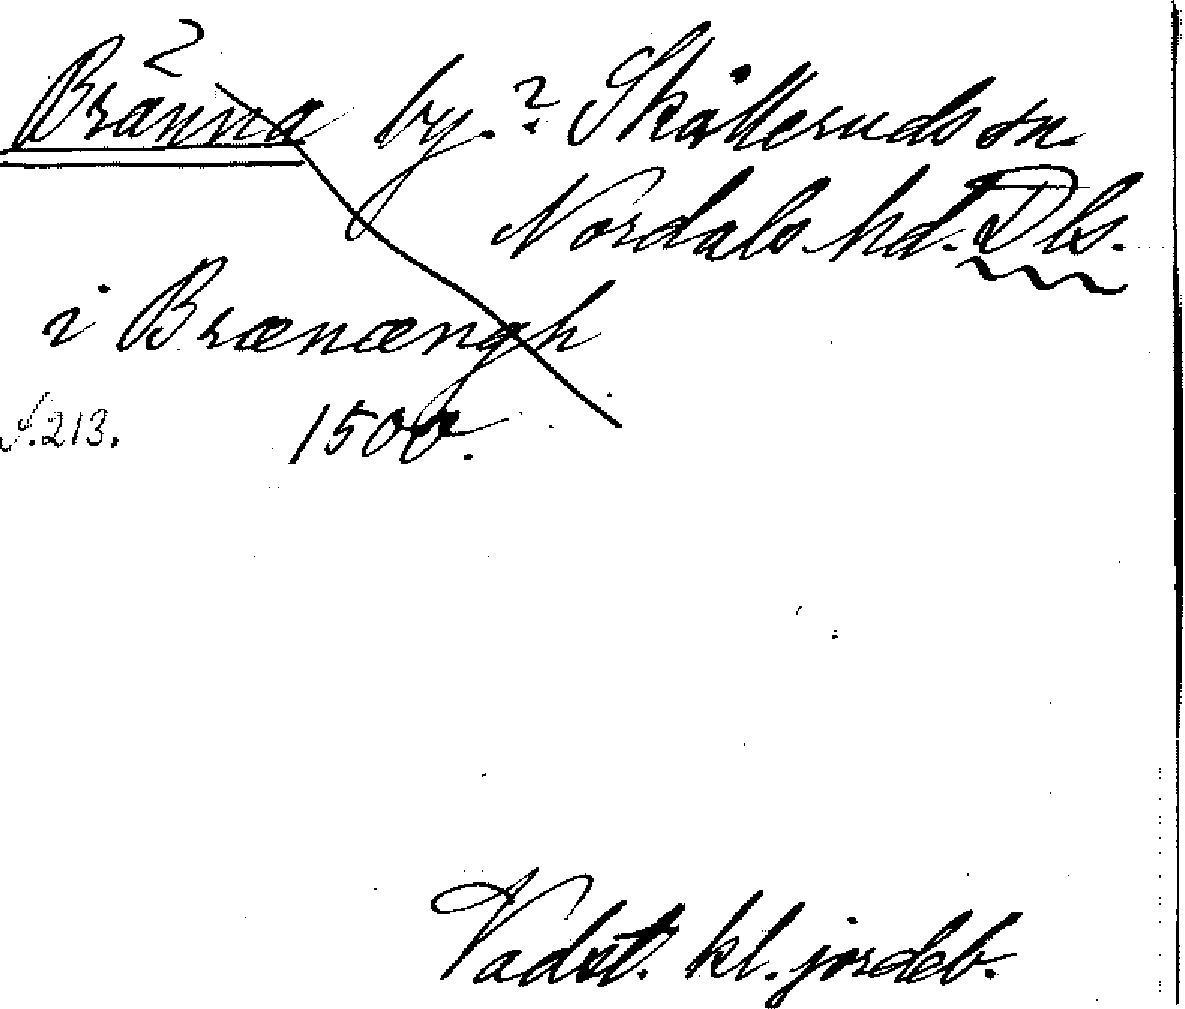 2
Bränna by.? Skålleruds sn.
Nordals hd. Dls.
i Brænængh
S. 213. 1500.
Vadst. kl. jordeb.